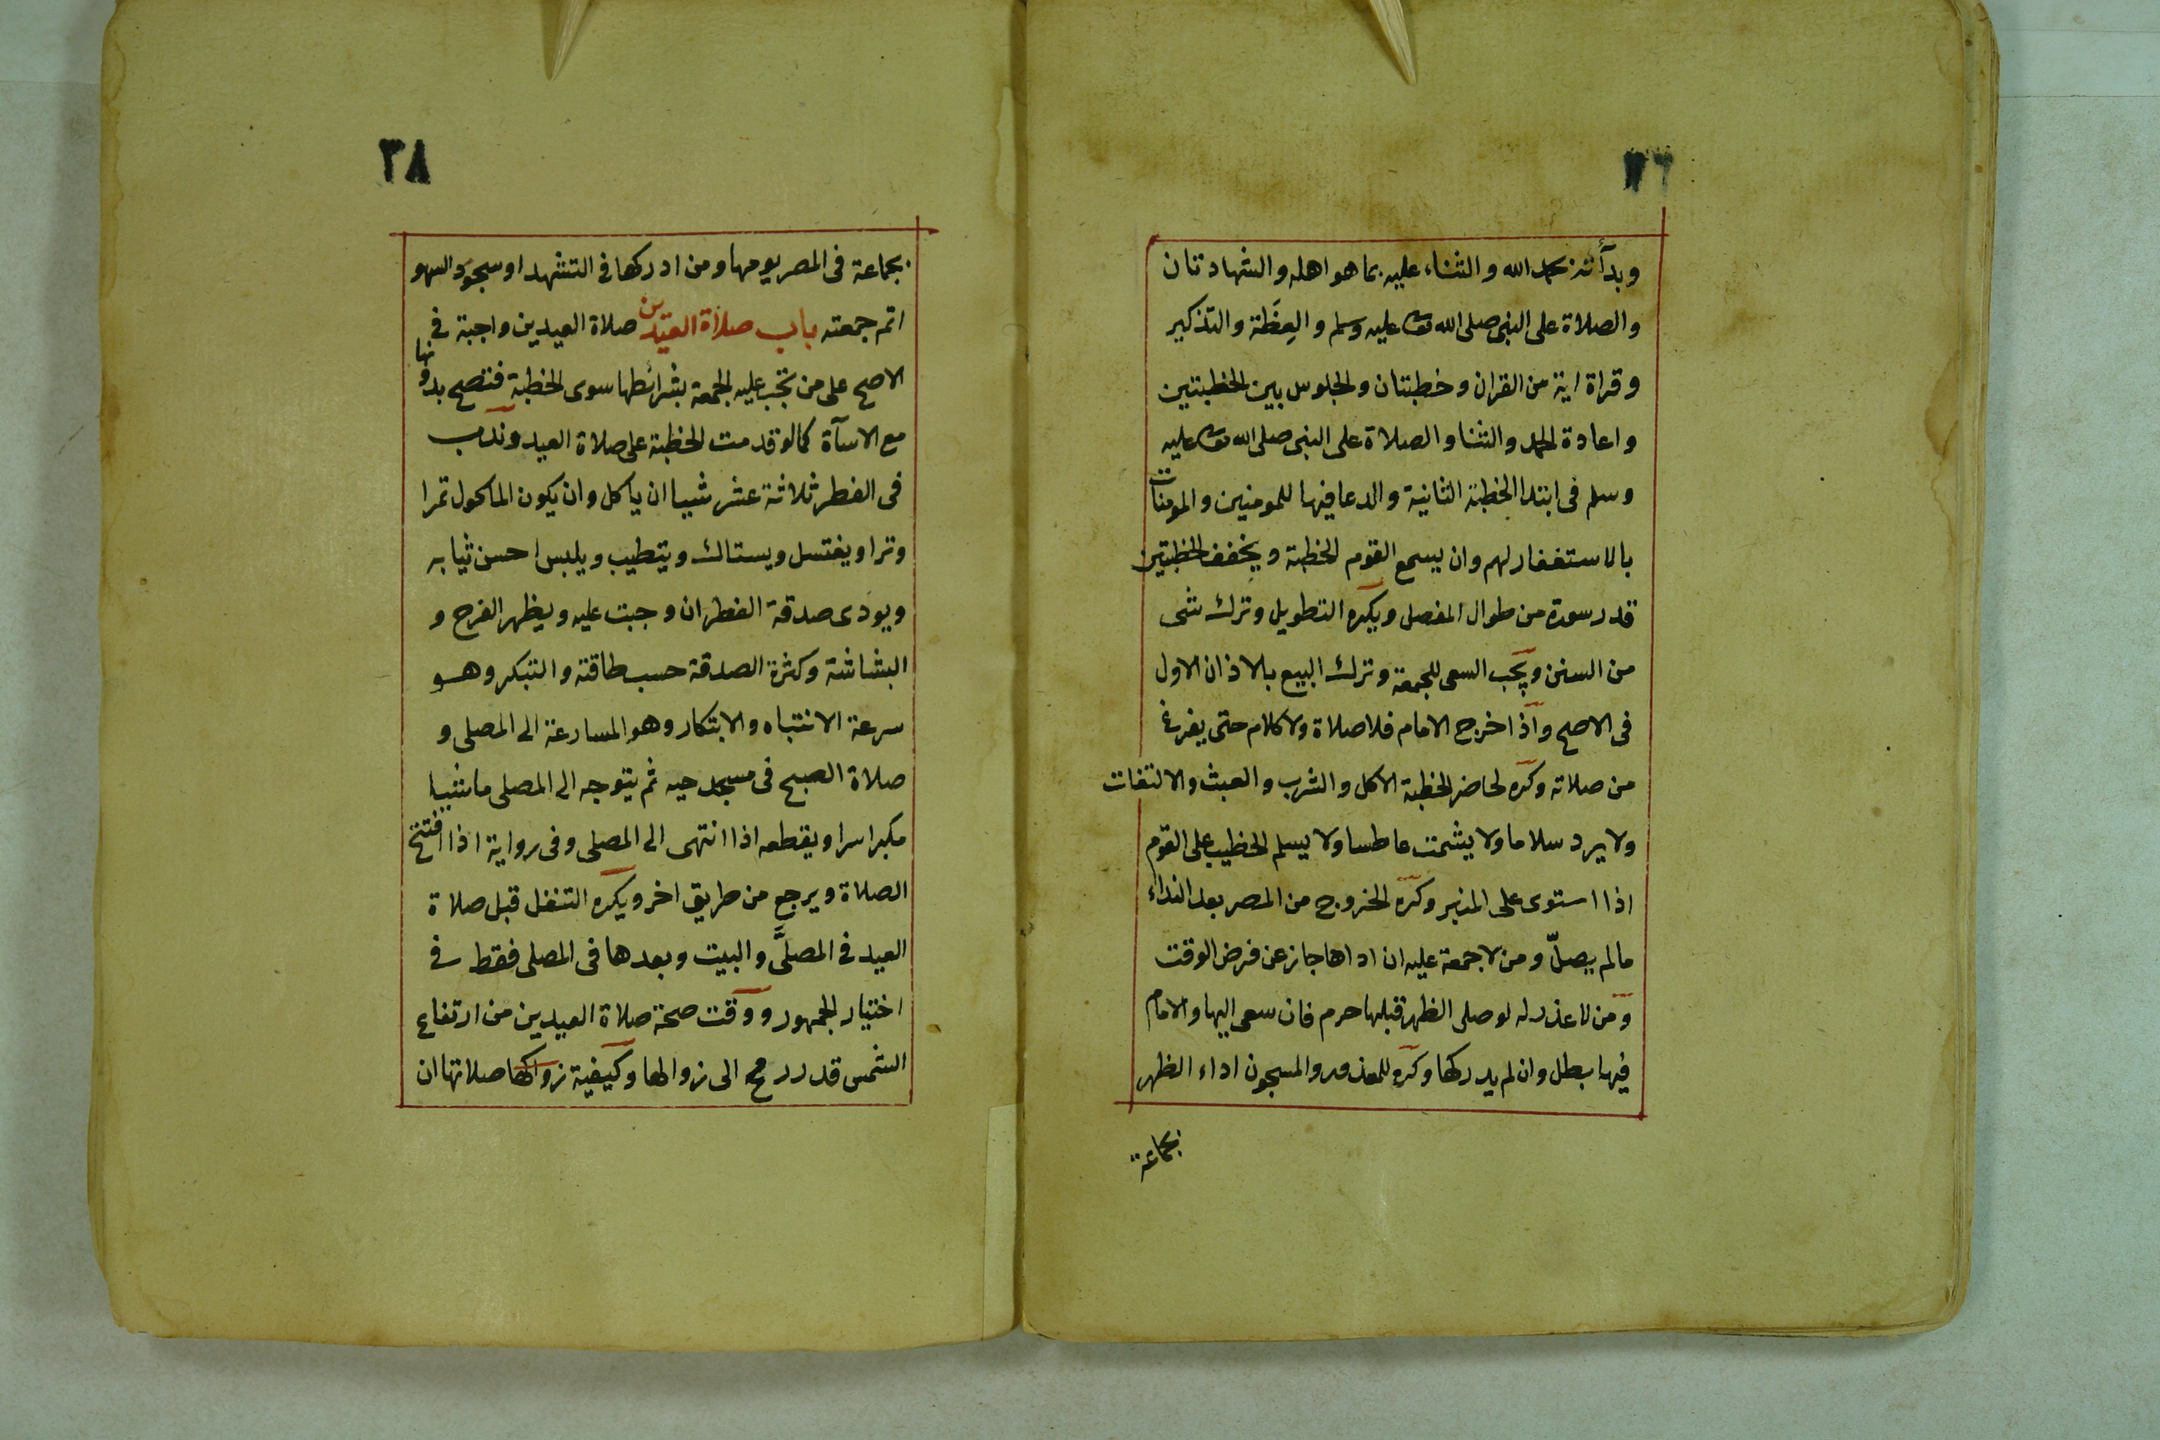 وبدأته بحمد الله والثناء عليه بما هو اهله والشهادتان
والصلاة على النبى صلى الله تعالى عليه وسلم والعِظَة والتذكير
وقراة اية من القران وخطبتان والجلوس بين الخطبتين
واعادة الحمد والثنا والصلاة على النبى صلى الله تعالى عليه
وسلم فى ابتدا الخطبة الثانية والدعا فيها للمومنين والمومنات
بالاستغفار لهم وان يسمع القوم الخطبة ويخفف الخطبتين
قدر سورة من طوال المفصل ويكره التطويل وترك شى
من السنن ويجب السعى للجمعة وترك البيع بالاذان الاول
فى الاصح واذا خرج الامام فلا صلاة ولا كلام حتى يفرغ
من صلاته وكره لحاضر الخطبة الاكل والشرب والعبث والالتفات
ولا يرد سلاما ولا يشمت عاطسا ولا يسلم الخطيب على القوم
اذا استوى على المنبر وكره الخروج من المصر بعد النداء
مالم يصلّ ومن لا جمعة عليه ان اداها جاز عن فرض الوقت
ومن لا عذر له لو صلى الظهر قبلها حرم فان سعى اليها والامام
فيها بطل وان لم يدركها وكره للمعذور والمسجون اداء الظهر
بجماعة
٣٨
بجماعة فى المصر يومها ومن ادركها فى التشهد او سجود السهو
اتم جمعته باب صلاة العيدين صلاة العيدين واجبة فى
الاصح على من تجب عليه الجمعة بشرائطها سوى الخطبة فتصح بدونها
مع الاسآة كما لو قدمت الخطبة على صلاة العيد وندب
فى الفطر ثلاثة عشر شيا ان ياكل وان يكون الماكول تمرا
وترا ويغتسل ويستاك ويتطيب ويلبس احسن ثيابه
ويودى صدقة الفطر ان وجبت عليه ويظهر الفرح و
البشاشة وكثرة الصدقة حسب طاقته والتبكر وهو
سرعة الانتباه والابتكار وهو المسارعة الى المصلى و
صلاة الصبح فى مسجد حيه ثم يتوجه الى المصلى ماشيا
مكبرا سرا ويقطعه اذا انتهى الى المصلى وفى رواية اذا افتتح
الصلاة ويرجع من طريق اخر ويكره التنفل قبل صلاة
العيد فى المصلَّى والبيت وبعدها فى المصلى فقط فى
اختيار الجمهور ووقت صحة صلاة العيدين من ارتفاع
الشمس قدر رمح الى زوالها وكيفية زوالها صلاتها ان